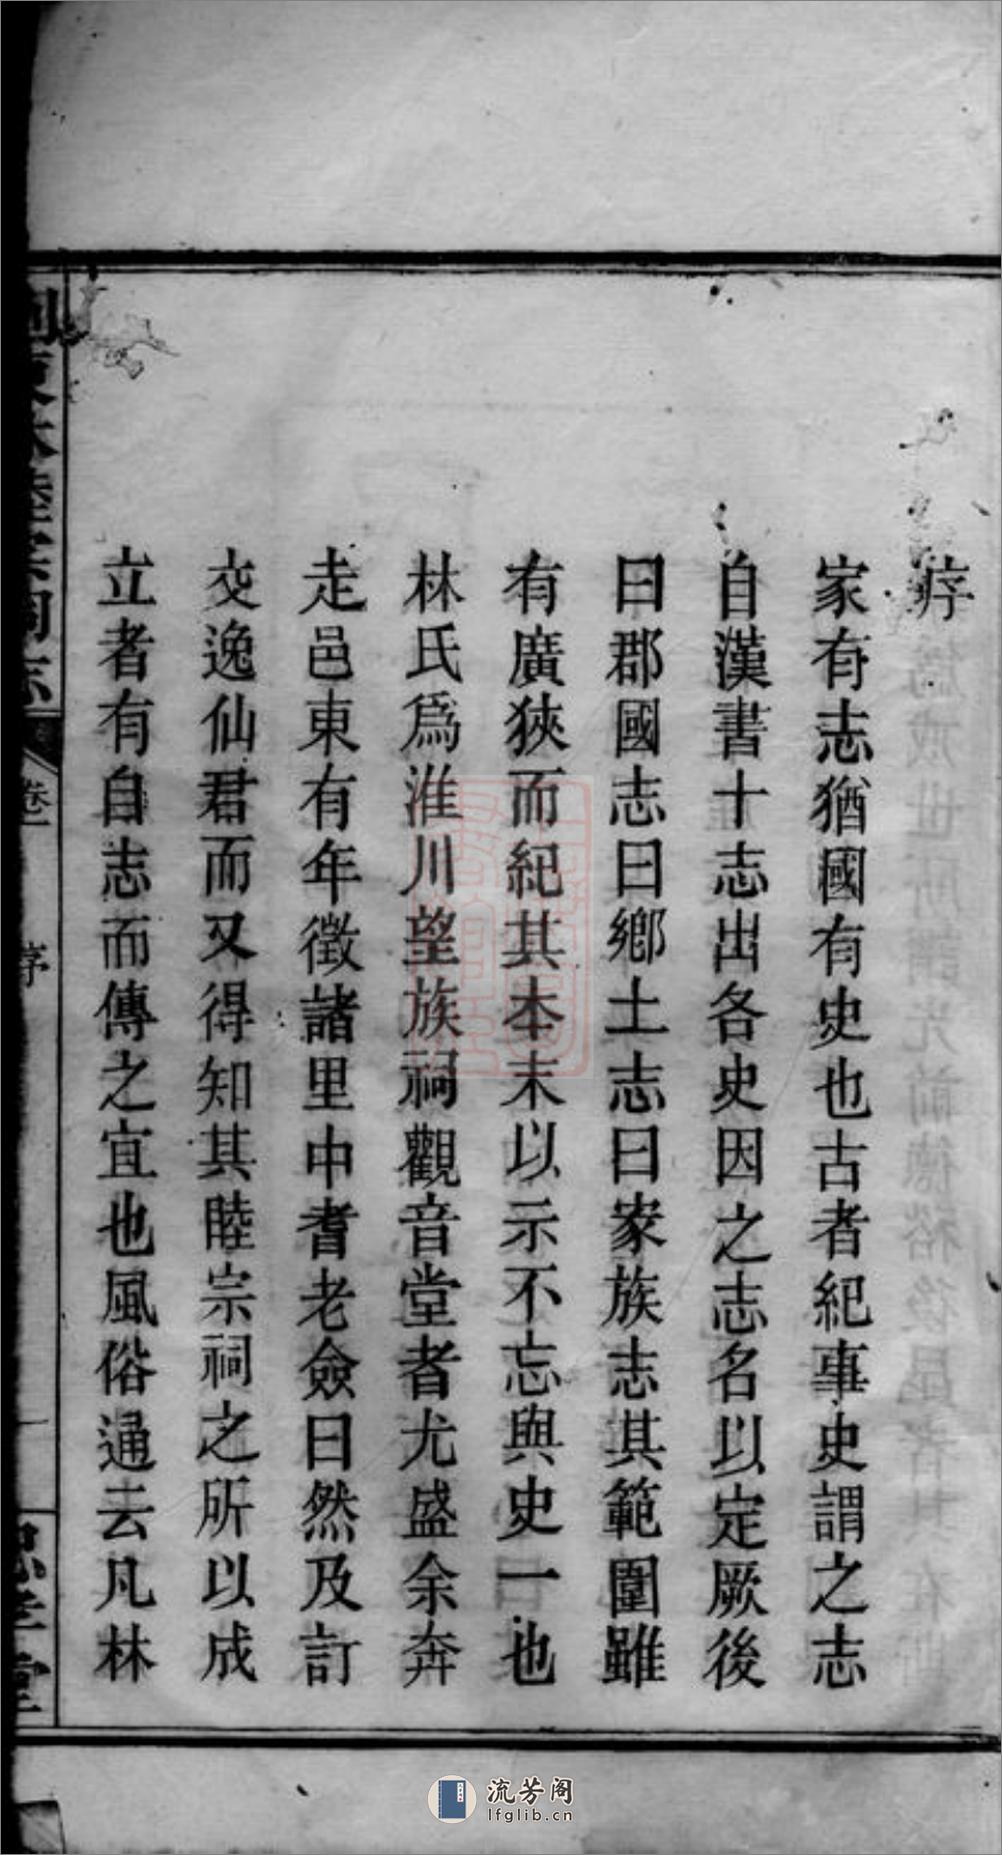 序
家有志猶國有史也古者紀事史謂之志
自漢書十志出各史因之志名以定厥後
曰郡國志曰鄉土志曰家族志其範圍雖
有廣狹而紀其本末以示不忘與史一也
林氏爲淮川望族祠觀音堂者尤盛余奔
走邑東有年徵諸里中耆老僉曰然及訂
交逸仙君而又得知其睦宗祠之所以成
立者有自志而傳之宜也風俗通云凡林
卷一
序
一
流芳阁
lfglib.cn